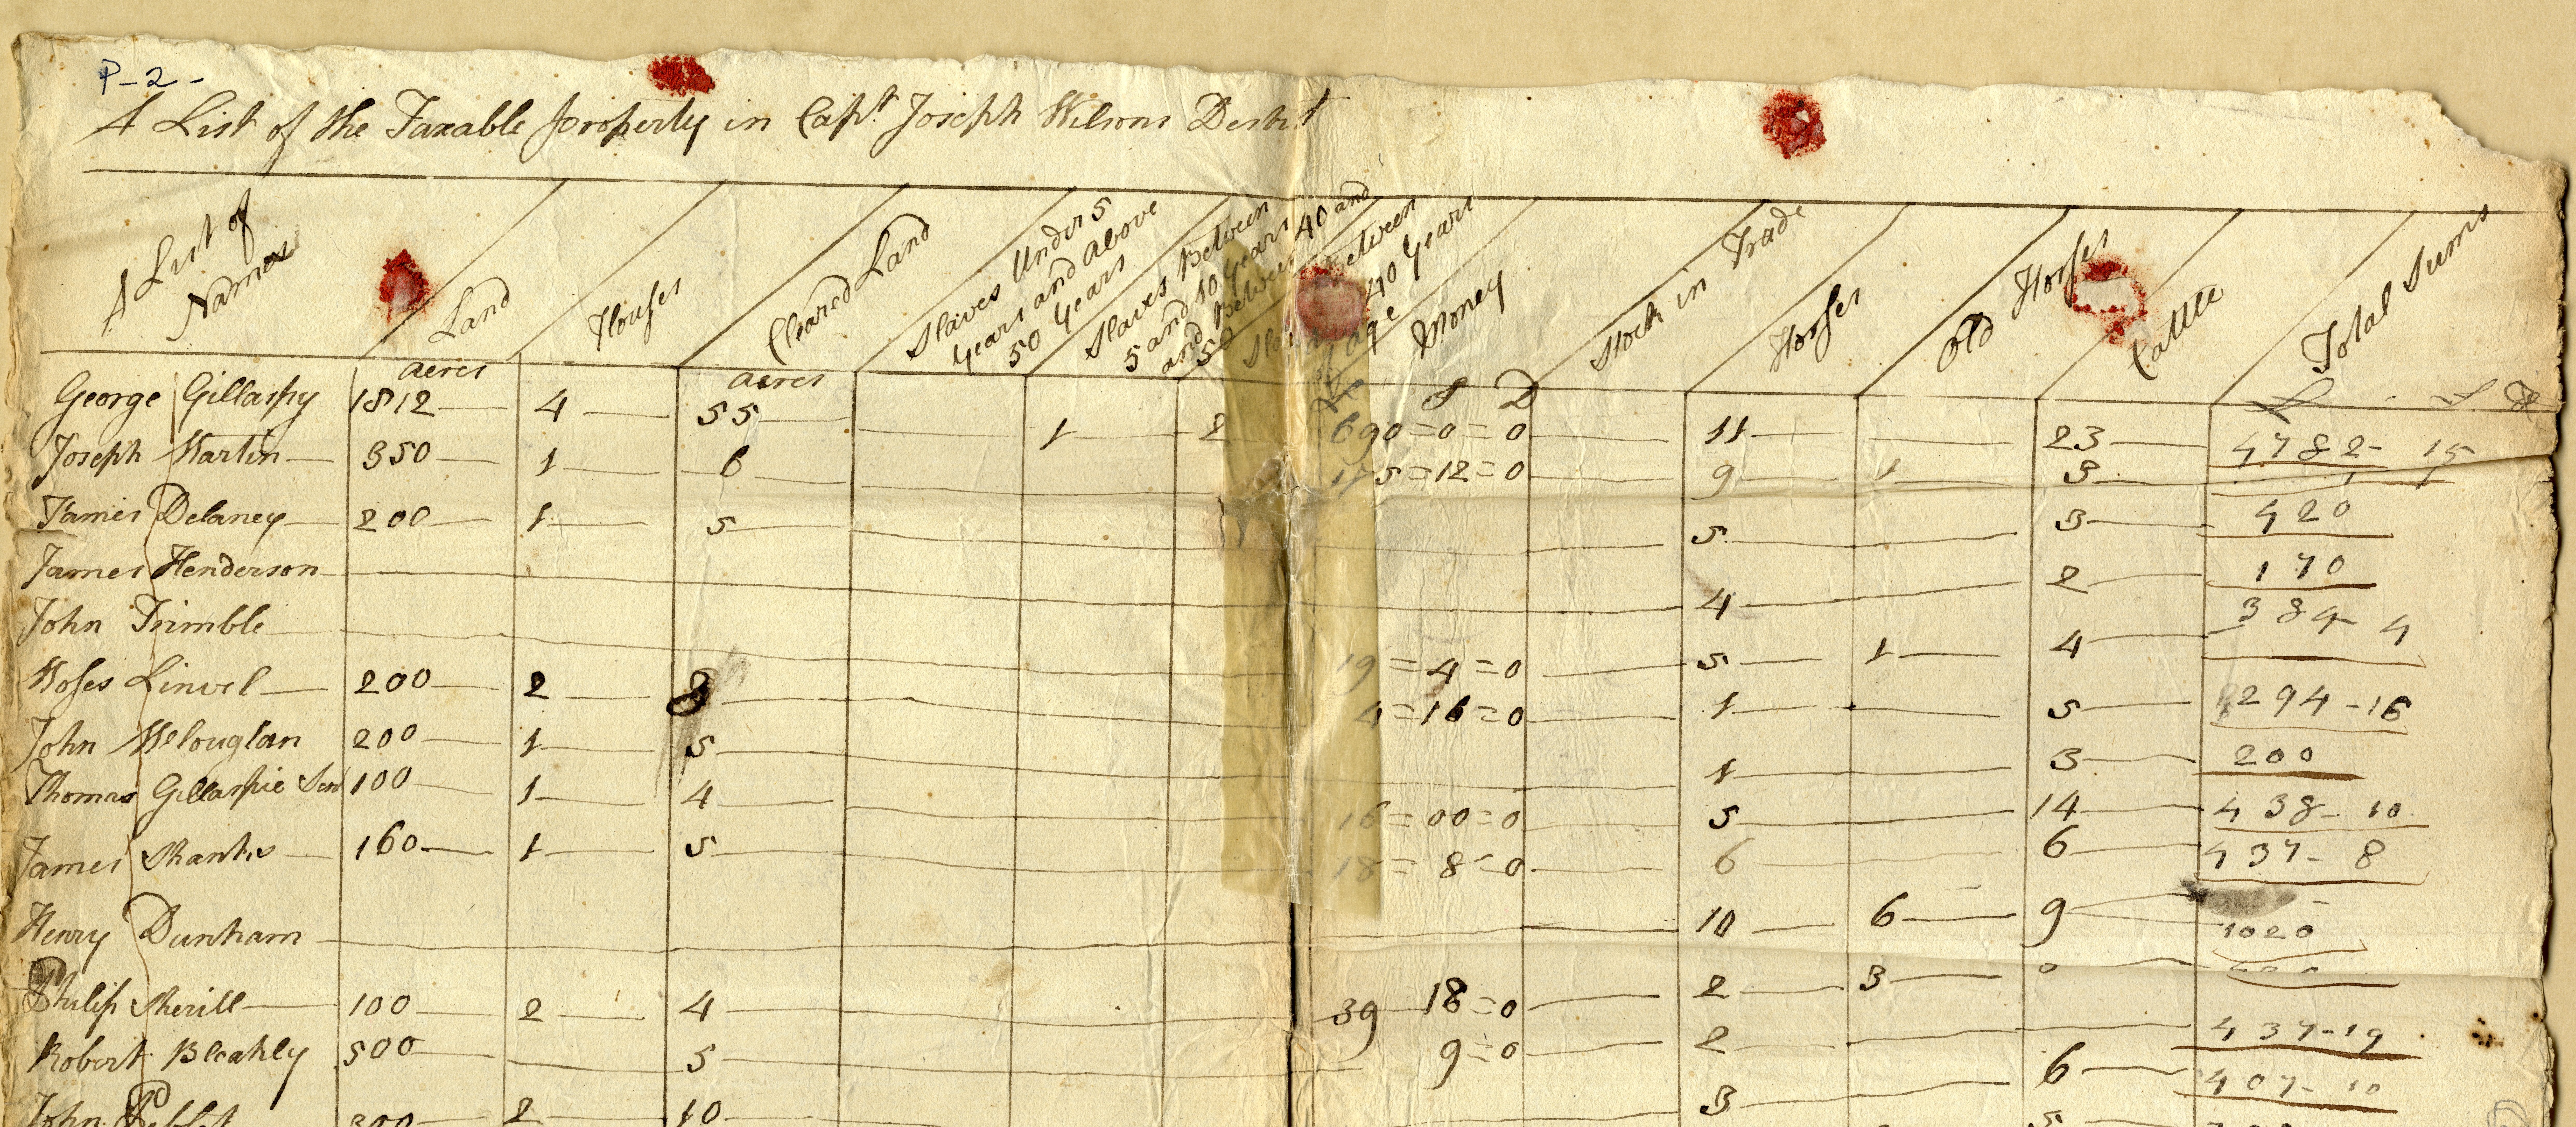 P-2-
A List of the Taxable property in Capt. Joseph Wilsons Destrt
A List of Names
Land
Houses
Cleared Land
Slaves Under 5 years and above 50 years
Slaves Between 5 and 10 years and Between 40 and 50
Between 40 years age
Money
Stock in Trade
Horses
Old Horses
Cattle
Total Sums
acres acres S D
George Gillaspy 1812 4 55 1 2 690=0=0 11 23 4782- 15
Joseph Martin 350 1 6 175=12=0 9 1 3
James Delaney 200 1 5 5 3 420
James Henderson 4 2 170
John Trimble 19=4=0 5 1 4 384- 4
Moses Linvel 200 2 8 4=16=0 1 5 294-16
John McCouglan 200 1 5 1 3 200
Thomas Gillaspie Sen 100 1 4 16=00=0 5 14 438- 10
James Shanks 160 1 5 18=8=0 6 6 437- 8
Henry Dunham 10 6 9 1020
Philip Sherill 100 2 4 39 18=0 2 3 0
Robert Bleakly 500 5 9=0 2 437-19
John 300 2 10 3 6 407-10
5